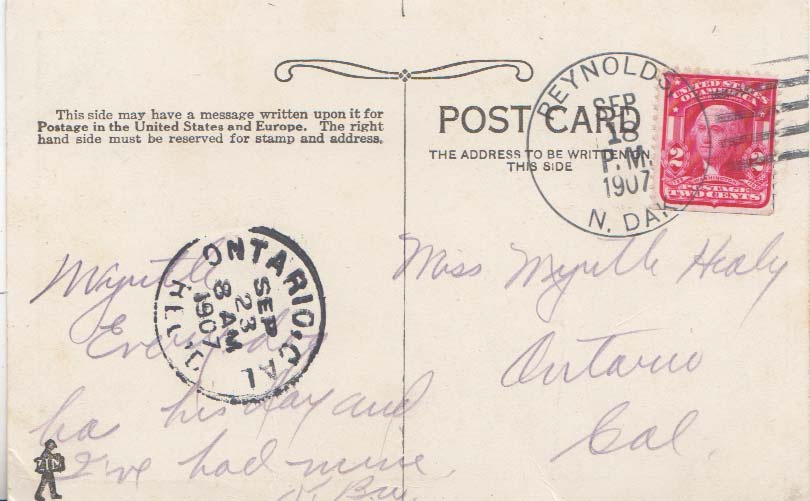 This side may have a message written upon it for
Postage in the United States and Europe. The right
hand side must be reserved for stamp and address.
POST CARD
THE ADDRESS TO BE WRITTEN ON
THIS SIDE
REYNOLDS
SEP
18
P.M.
1907
N. DAK
UNITED STATES
OF AMERICA
2 2
WASHINGTON
POSTAGE
TWO CENTS
ONTARIO, CAL
SEP
23
8 AM
1907
REC'D.
Myrtle
Every dog
has his day and
I've had mine.
Miss Myrtle Healy
Ontario
Cal.
ZIM